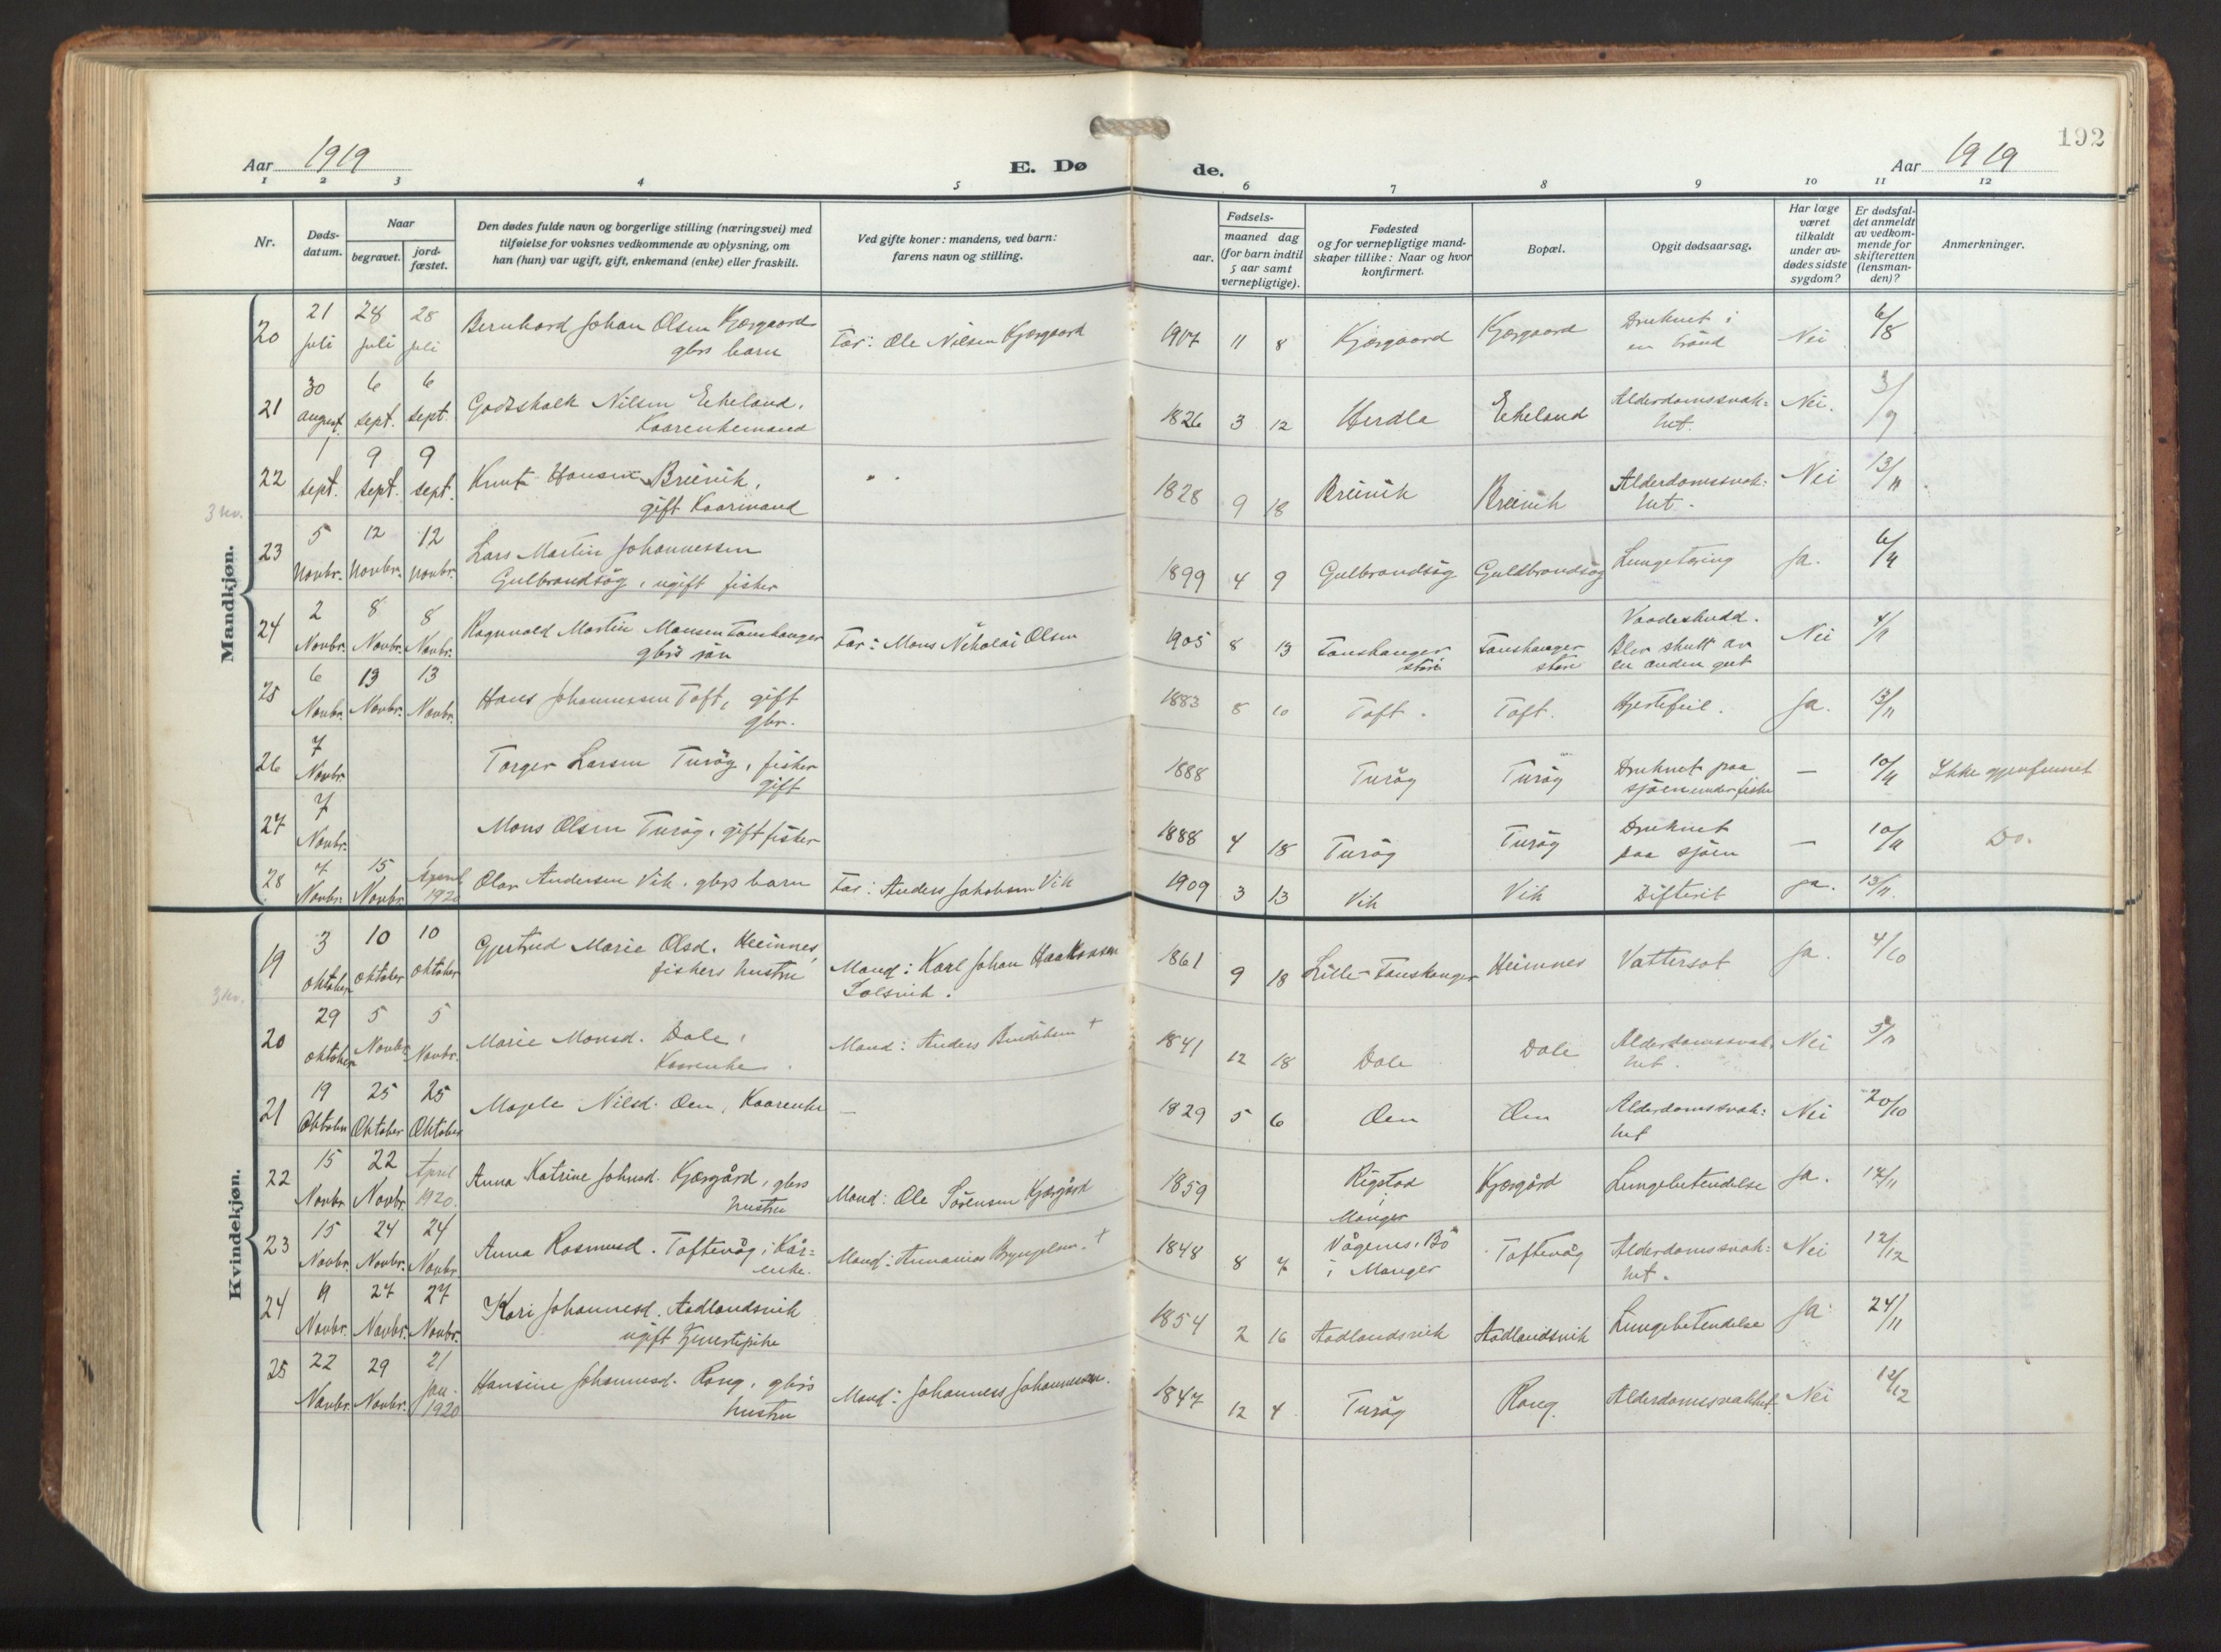 192
Aar 1919
E. Dø
de.
Aar 1919
1 2 3 4 5 6 7 8 9 10 11 12
Nr.
Døds-
datum.
Naar
begravet.
jord-
fæstet.
Den dødes fulde navn og borgerlige stilling (næringsvei) med
tilføielse for voksnes vedkommende av oplysning, om
han (hun) var ugift, gift, enkemand (enke) eller fraskilt.
Ved gifte koner: mandens, ved barn:
farens navn og stilling.
Fødsels-
aar.
maaned dag
(for barn indtil
5 aar samt
vernepligtige).
Fødested
og for vernepligtige mand-
skaper tillike: Naar og hvor
konfirmert.
Bopæl.
Opgit dødsaarsag.
Har læge
været
tilkaldt
under av-
dødes sidste
sygdom?
Er dødsfal-
det anmeldt
av vedkom-
mende for
skifteretten
(lensman-
den)?
Anmerkninger.
Mandkjøn.
20 21 juli 28 juli 28 juli
Bernhard Johan Olsen Kjærgaard
gbrs barn
Far: Ole Nilsen Kjærgaard
1917 11 8 Kjærgaard Kjærgaard
Druknet i
en brønd
Nei 6/8
21 30 august 6 sept. 6 sept.
Godtskalk Nilsen Eikeland.
Kaarenkemand
1826 3 12 Herdla Eikeland
Alderdomssvak=
het.
Nei. 3/9
22 1 sept. 9 sept. 9 sept.
Knut Hansen Breivik,
gift Kaarmand
1828 9 18 Breivik Breivik
Alderdomssvak=
het.
Nei 13/11
3 kv.
23 5 Novbr. 12 Novbr. 12 novbr.
Lars Martin Johannessen
Gulbrandsøg, ugift fisker
1899 4 9 Gulbrandsøg Guldbrandsøg
Lungetæring
Ja. 6/11
24 2 Novbr. 8 Novbr. 8 Novbr.
Ragnvald Martin Monsen Fauskanger
gbrs søn
Far: Mons Nikolai Olsen
1905 8 13 Fauskanger
store
Fauskanger
store
Vaadeskudd.
Blev skutt av
en anden gut
Nei 4/11
25 6 Novbr. 13 Novbr. 13 Novbr.
Hans Johannessen Toft, gift
gbr.
1883 8 10 Toft. Toft. Hjertefeil. Ja. 13/11
26 7 Novbr.
Torger Larsen Turøg, fisker
gift
1888 Turøg Turøg
Druknet paa
sjøen under fiske
— 10/11 Ikke gjenfunnet
27 7 Novbr.
Mons Olsen Turøg, gift fisker
1888 4 18 Turøg Turøg
Druknet
paa sjøen
— 10/11 Do.
28 7 Novbr. 15 Novbr. April 1920
Olav Andersen Vik, gbrs barn
Far: Anders Jakobsen Vik
1909 3 13 Vik Vik Difterit ja. 13/11.
Kvindekjøn.
19 3 oktober 10 oktober 10 oktober
Gjertrud Marie Olsd. Heimnes,
fiskers hustru
Mand: Karl Johan Haakonsen
Solsvik.
1861 9 18 Lille-Fauskanger Heimnes Vattersot Ja. 4/10
3 kv.
20 29 oktober 5 Novbr. 5 Novbr.
Marie Monsd. Dale,
Kaarenke.
Mand: Anders +
1841 12 18 Dale Dale
Alderdomssvak.
het.
Nei 5/11
21 19 Oktober 25 Oktober 25 Oktober
Magle Nilsd. Øen, Kaarenke
—
1829 5 6 Øen Øen
Alderdomssvak:
het
Nei 20/10
22 15 Novbr. 22 Novbr. April 1920.
Anna Katrine Johnsd. Kjærgård, gbrs
hustru
Mand: Ole Sørensen Kjærgård
1859 Rigstad
i
Manger
Kjærgård Lungebetendelse Ja. 17/11
23 15 Novbr. 24 Novbr. 24 Novbr.
Anna Rasmusd. Toftevåg, Kår=
enke.
Mand: Annanias Brynjelsen. +
1848 8 7 Vågenes, Bø
i Manger
Toftevåg Alderdomssvak:
het.
Nei 12/12
24 19 Novbr. 27 Novbr. 27 Novbr.
Kari Johannesd. Aadlandsvik
ugift tjenestepike
1854 2 16 Aadlandsvik Aadlandsvik Lungebetendelse Ja. 24/11
25 22 Novbr. 29 Novbr. 21 jan. 1920
Hansine Johannesd. Rong, gbrs
hustru
Mand: Johannes Johannessen.
1847 12 4 Turøg Rong. Alderdomssvakhet. Nei 12/12